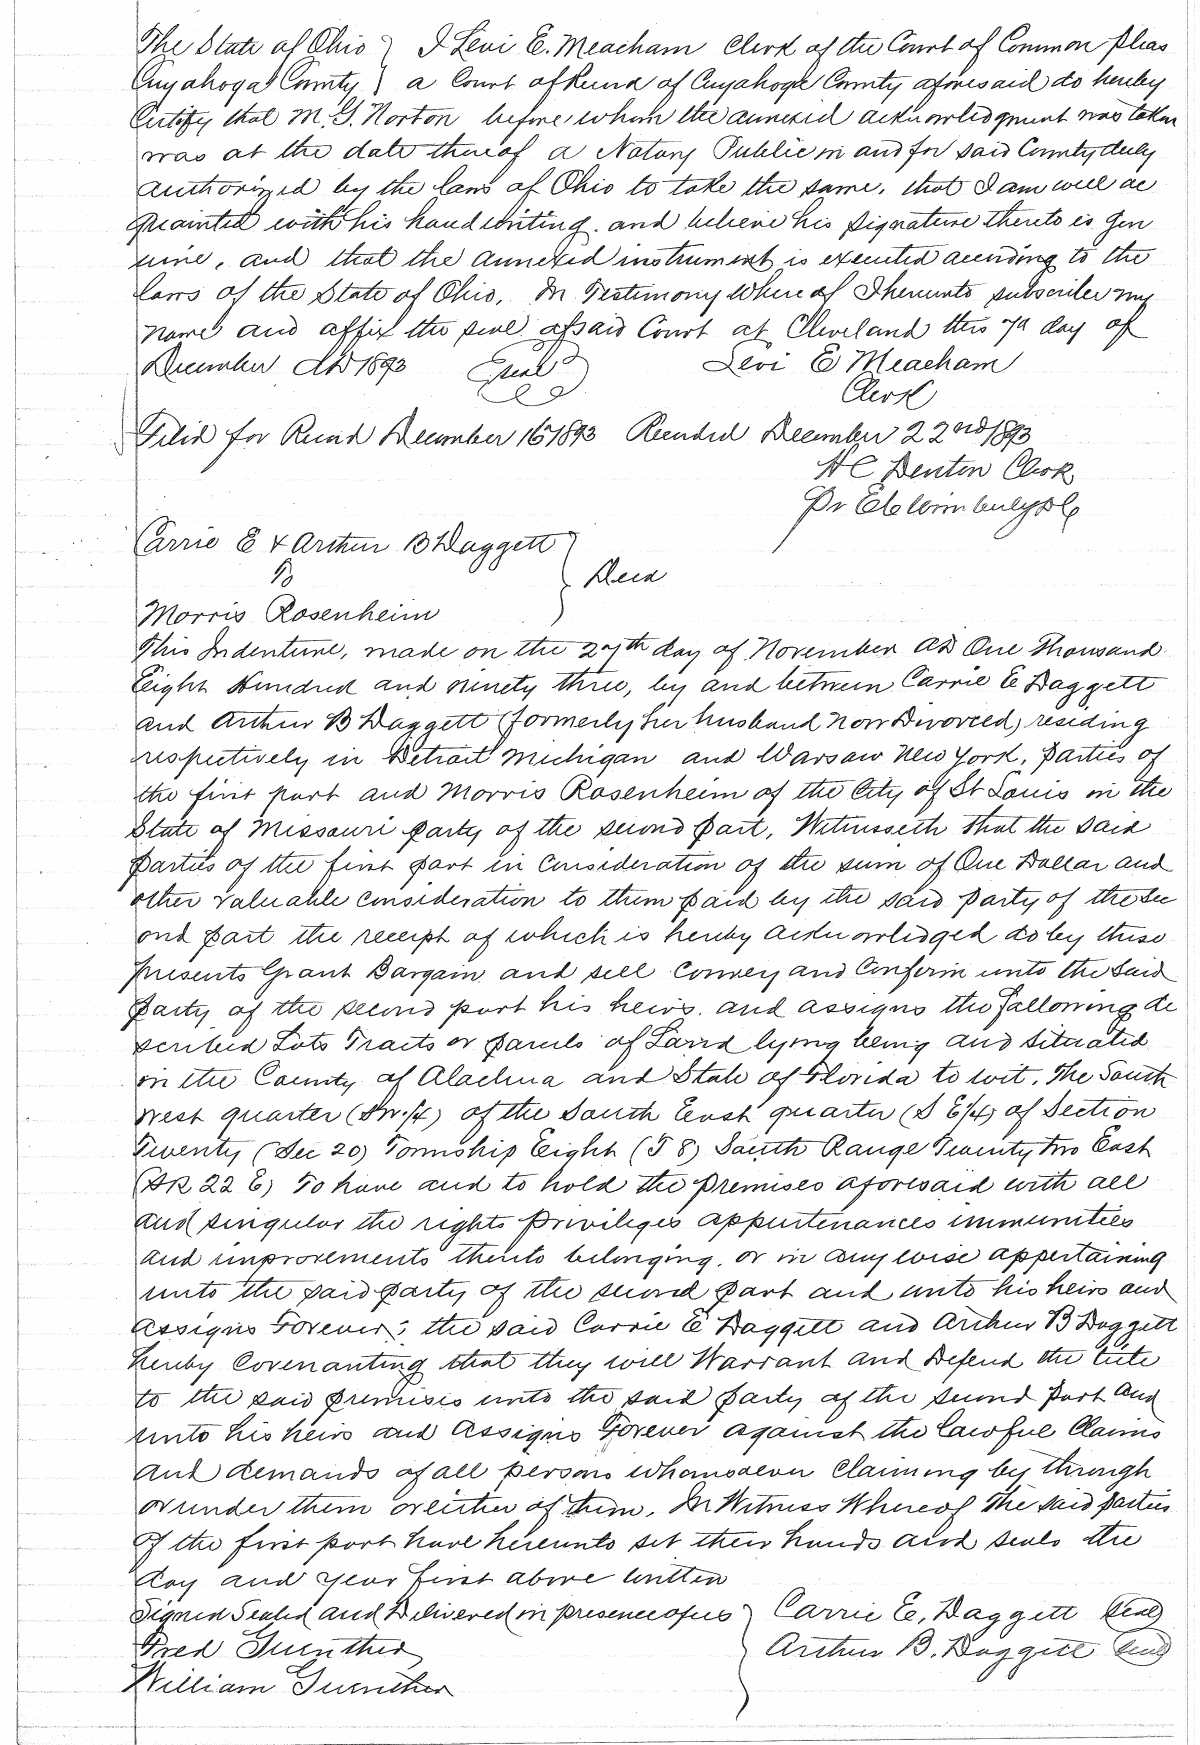 The State of Ohio } I Levi E. Meacham Clerk of the Court of Common pleas
Cuyahoga County } a Court of Record of Cuyahoga County aforesaid do hereby
Certify that M. G. Norton before whom the annexed acknowledgment was taken
was at the date thereof a Notary Public in and for said County duly
authorized by the laws of Ohio to take the same, that I am well ac
quainted with his handwriting. and believe his signature thereto is gen
uine, and that the annexed instrument is executed according to the
laws of the State of Ohio. In Testimony Whereof I hereunto subscribe my
name and affix the seal of said Court at Cleveland this 7th day of
December AD 1893 (Seal) Levi E Meacham
Clerk
Filed for Record December 16 1893 Recorded December 22nd 1893
H C Denton Clerk
Pr
Carrie E & Arthur B Daggett
To } Deed
Morris Rosenheim
This Indenture, made on the 27th day of November AD One Thousand
Eight Hundred and ninety three, by and between Carrie E Daggett
and Arthur B Daggett (formerly her husband now Divorced) residing
respectively in Detroit Michigan and Warsaw New York, parties of
the first part and Morris Rosenheim of the City of St Louis in the
State of Missouri party of the second part, Witnesseth that the said
parties of the first part in consideration of the sum of One Dollar and
other valuable consideration to them paid by the said party of the sec
ond part the receipt of which is hereby acknowledged do by these
presents Grant Bargain and sell convey and confirm unto the said
party of the second part his heirs. and assigns the following de
scribed Lots Tracts or parcels of Land lying being and situated
in the County of Alachua and State of Florida to wit. The South
west quarter (SW 1/4) of the South East quarter (S E 1/4) of Section
Twenty (Sec 20) Township Eight (T 8) South Range Twenty two East
(SR 22 E) To have and to hold the premises aforesaid with all
and singular the rights privileges appurtenances immunities
and improvements thereto belonging. or in any wise appertaining
unto the said party of the second part and unto his heirs and
assigns Forever; the said Carrie E Daggett and Arthur B Daggett
hereby covenanting that they will Warrant and Defend the title
to the said premises unto the said party of the second part and
unto his heirs and Assigns Forever against the lawful Claims
and demands of all persons whomsoever claiming by through
or under them or either of them. In Witness Whereof The said parties
of the first part have hereunto set their hands and seals the
day and year first above written
Signed Sealed and Delivered in presence of us } Carrie E. Daggett (Seal)
Fred Guenther Arthur B. Daggett (Seal)
William Guenther